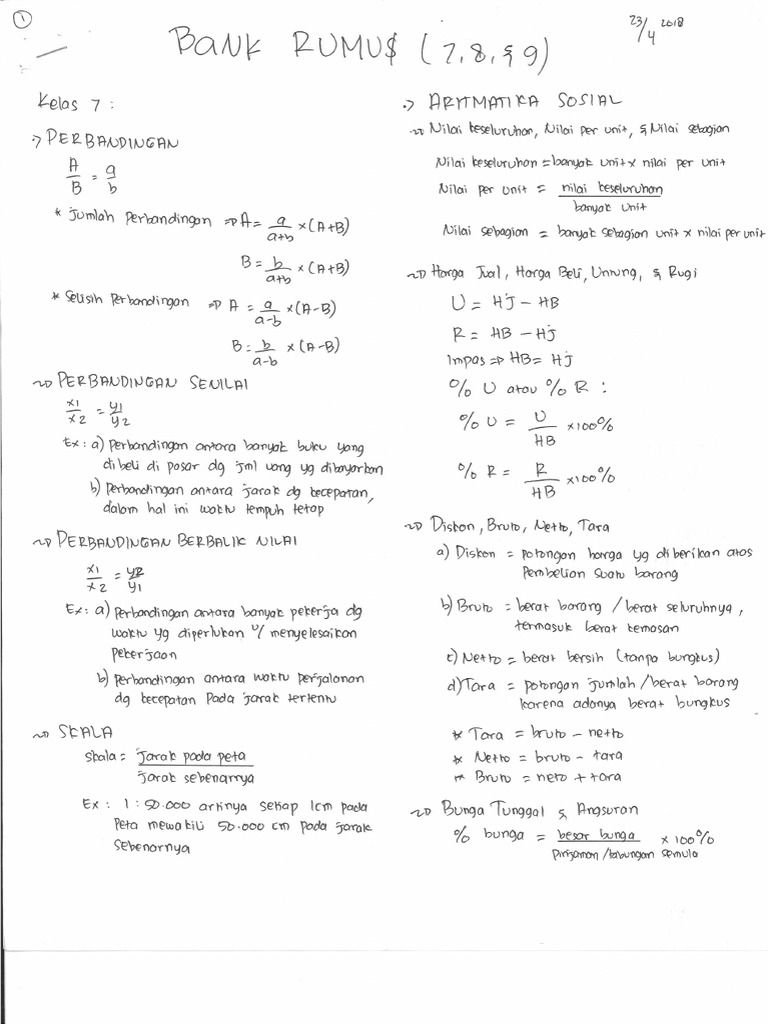 1
23/4 2018
BANK RUMU$ (7, 8, & 9)
Kelas 7 :
PERBANDINGAN
A/B = a/b
* Jumlah Perbandingan ⇒ A = a/(a+b) × (A+B)
B = b/(a+b) × (A+B)
* Selisih Perbandingan ⇒ A = a/(a-b) × (A-B)
B = b/(a-b) × (A-B)
PERBANDINGAN SENILAI
x1/x2 = y1/y2
Ex : a) Perbandingan antara banyak buku yang
dibeli di pasar dg jml uang yg dibayarkan
b) Perbandingan antara jarak dg kecepatan,
dalam hal ini waktu tempuh tetap
PERBANDINGAN BERBALIK NILAI
x1/x2 = y2/y1
Ex : a) Perbandingan antara banyak pekerja dg
waktu yg diperlukan u/ menyelesaikan
pekerjaan
b) Perbandingan antara waktu perjalanan
dg kecepatan pada jarak tertentu
SKALA
Skala = jarak pada peta
jarak sebenarnya
Ex : 1 : 50.000 artinya setiap 1cm pada
peta mewakili 50.000 cm pada jarak
sebenarnya
ARITMATIKA SOSIAL
Nilai keseluruhan, Nilai per unit, & Nilai sebagian
Nilai keseluruhan = banyak unit × nilai per unit
Nilai per unit = nilai keseluruhan
banyak unit
Nilai sebagian = banyak sebagian unit × nilai per unit
Harga Jual, Harga Beli, Untung, & Rugi
U = HJ - HB
R = HB - HJ
Impas ⇒ HB = HJ
% U atau % R :
% U = U/HB × 100%
% R = R/HB × 100%
Diskon, Bruto, Netto, Tara
a) Diskon = potongan harga yg diberikan atas
pembelian suatu barang
b) Bruto = berat barang / berat seluruhnya,
termasuk berat kemasan
c) Netto = berat bersih (tanpa bungkus)
d) Tara = potongan jumlah / berat barang
karena adanya berat bungkus
* Tara = bruto - netto
* Netto = bruto - tara
* Bruto = neto + tara
Bunga Tunggal & Angsuran
% bunga = besar bunga × 100%
pinjaman / tabungan semula